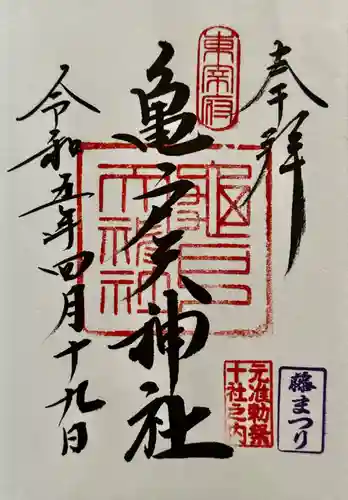 奉拝
東宰府
亀戸天神社
亀戸天神社
令和五年四月十九日
元准勅祭
十社之内
藤まつり